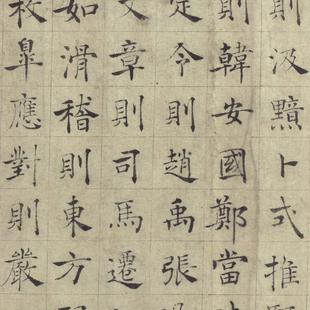 則汲黯卜式推
則韓安國鄭當
定令則趙禹張
文章則司馬遷
如滑稽則東方
枚皐應對則嚴